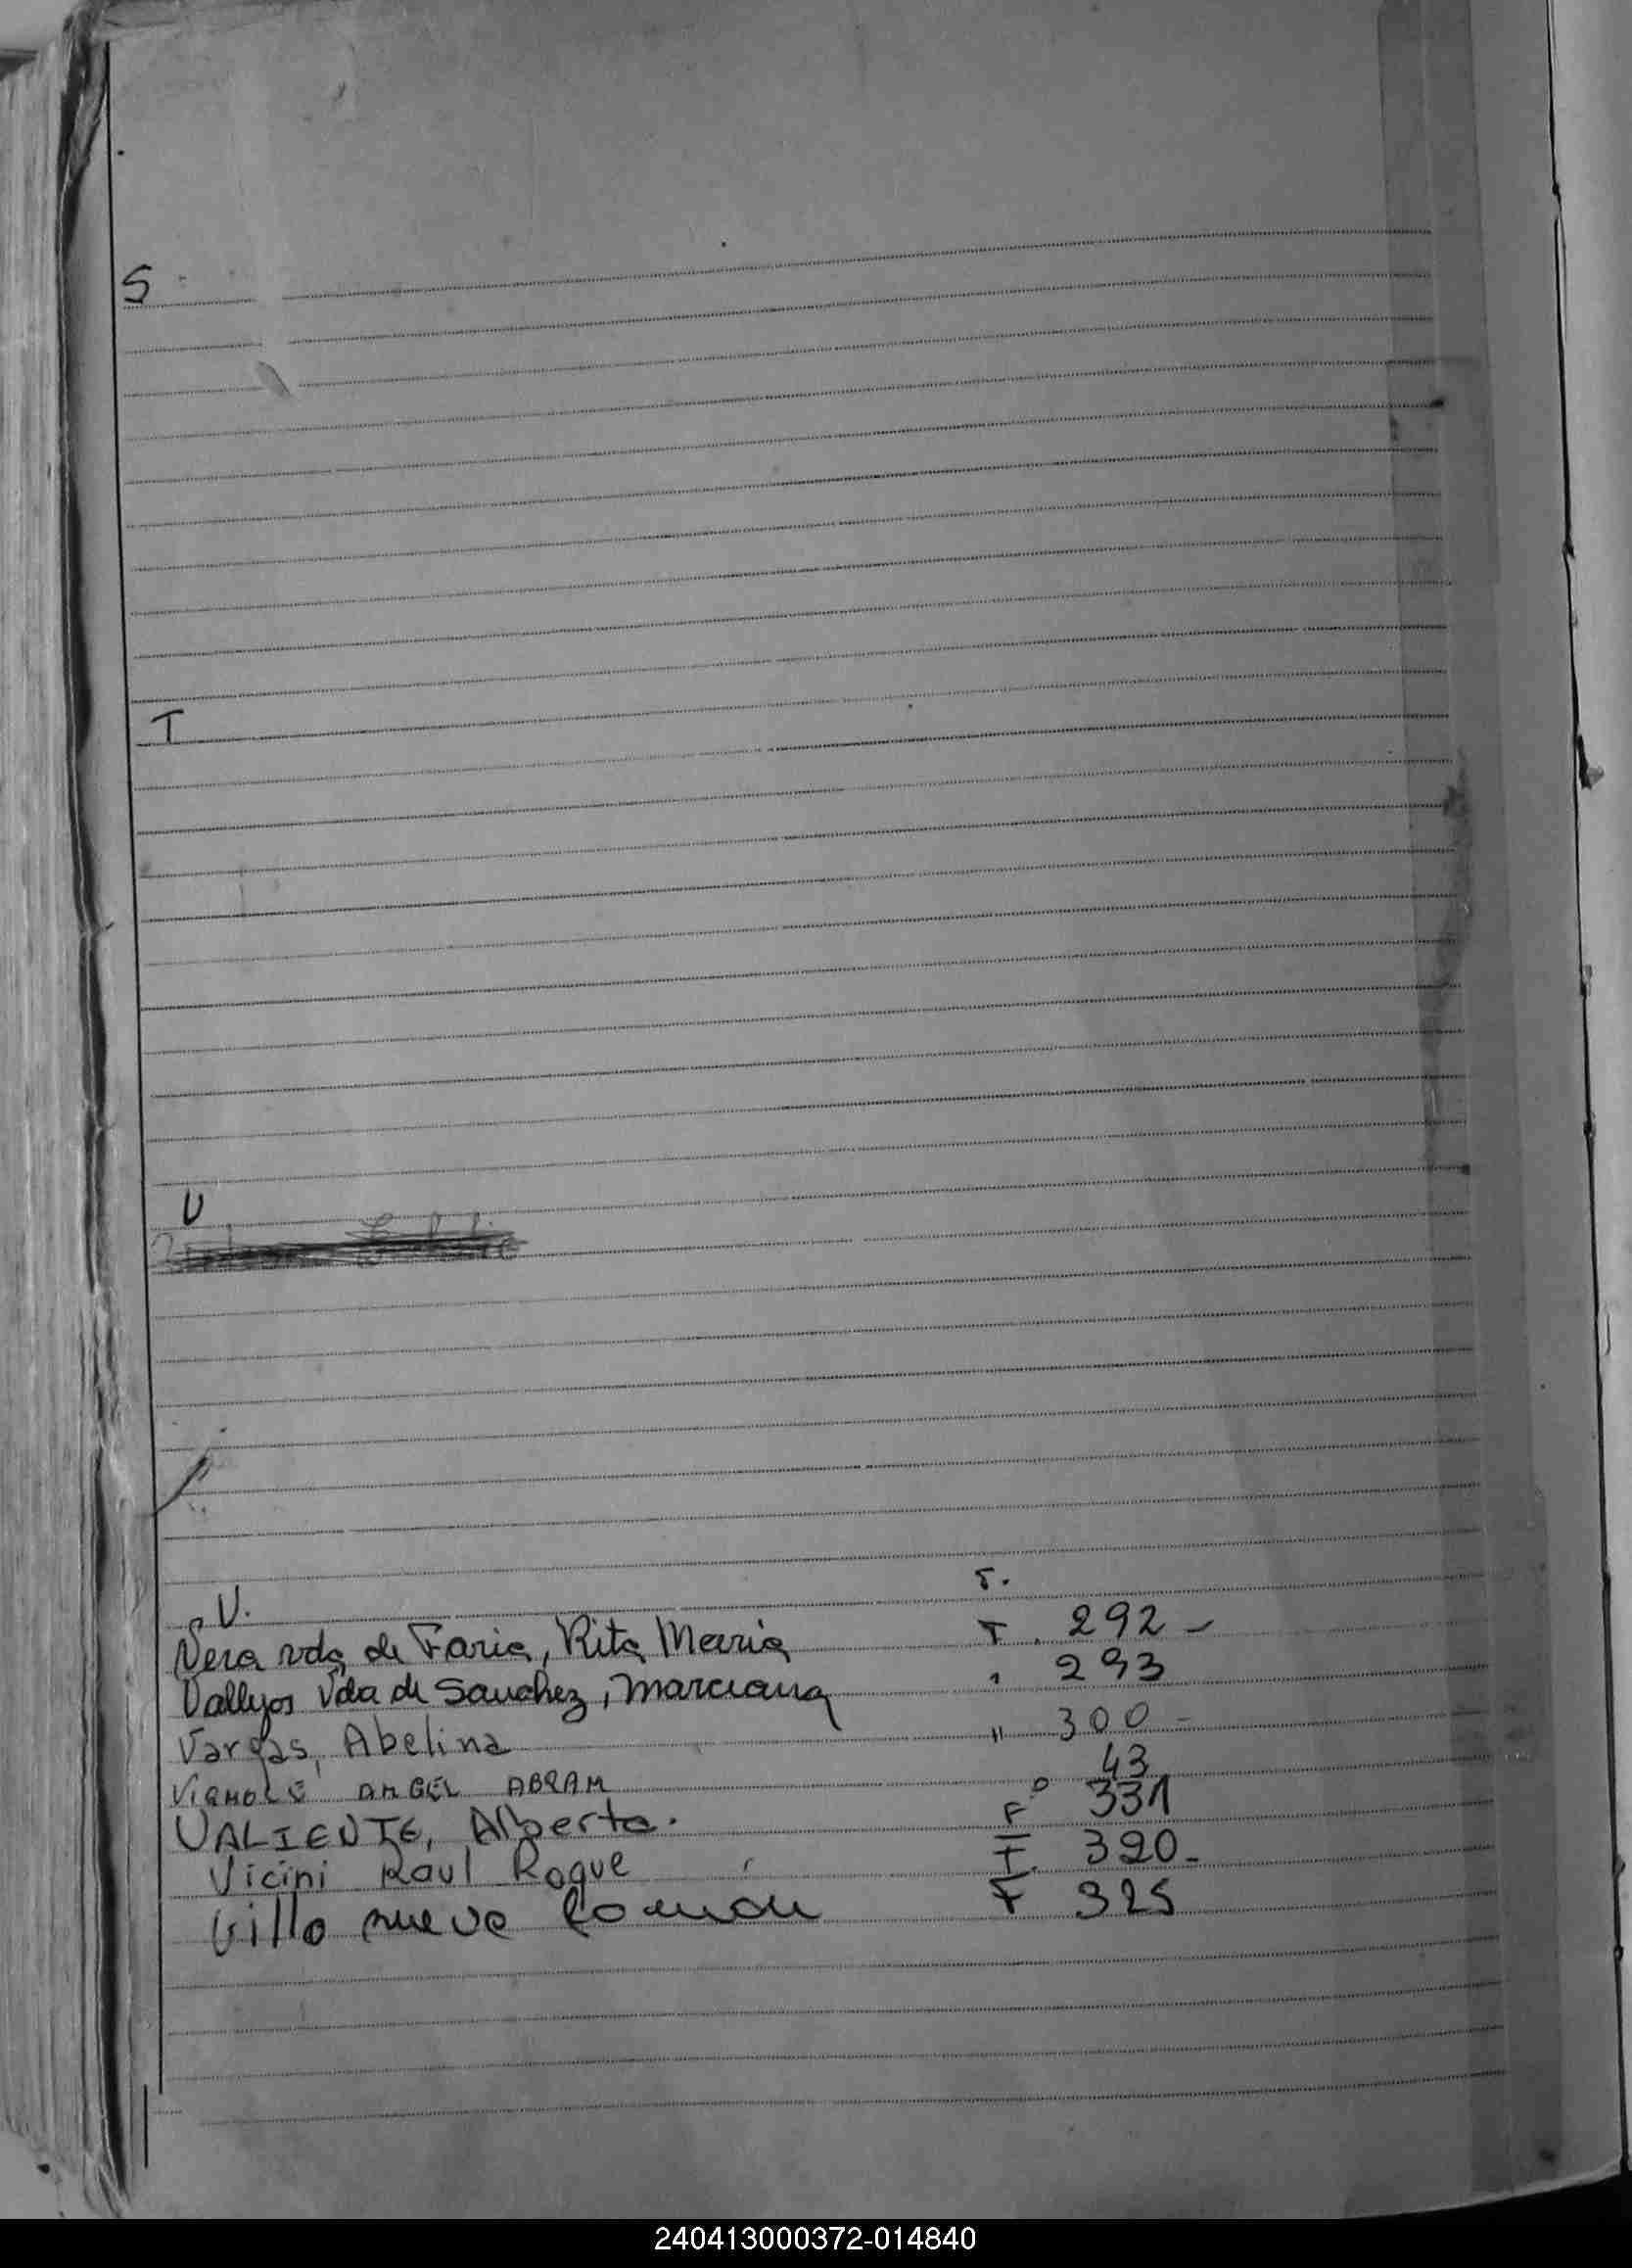 S
T
U
V. F.
Vera vda de Faria, Rita Maria T. 292 -
Vallejos Vda de Sanchez, Marciana " 293
Vargas, Abelina " 300 -
VIGNOLE ANGEL ABRAM 43
VALIENTE, Alberto. Fº 331
Vicini Raul Roque F. 320 -
Villa nueva F 325
240413000372-014840